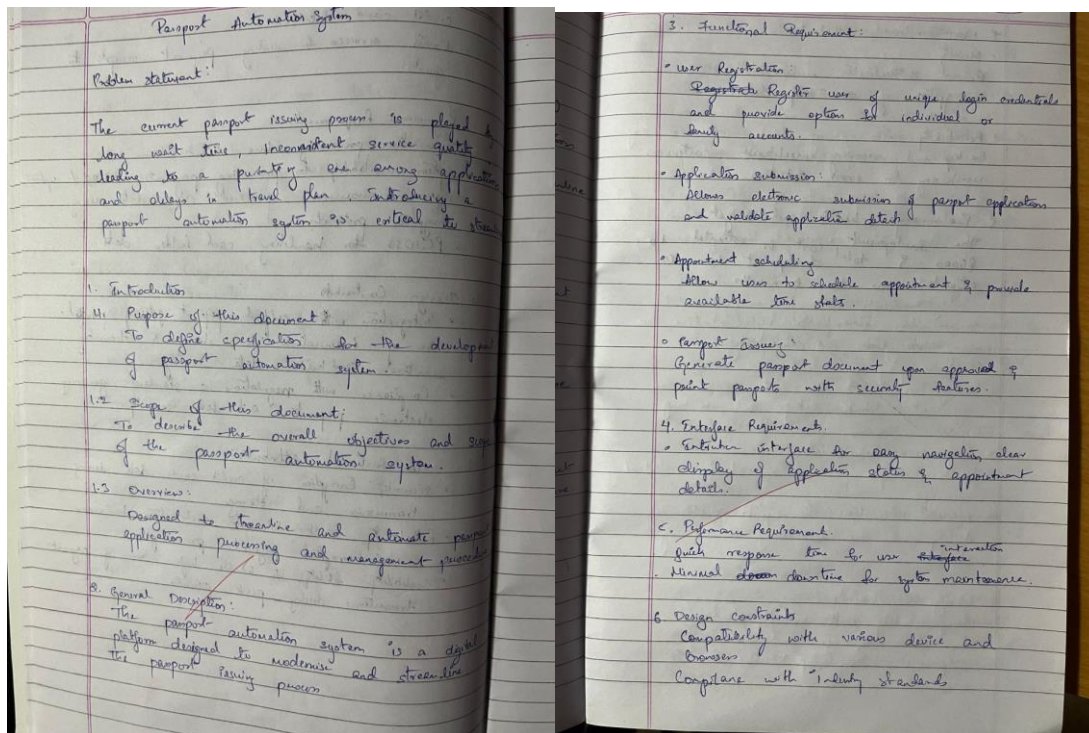 Passport Automation System
Problem statement:
The current passport issuing process is played by
long wait time, inconsistent service quality
leading to a among application
and delays in travel plan. Introducing a
passport automation system is critical to
1. Introduction
Purpose of this document:
To define specification for the development
of passport automation system.
1.2 Scope of this document;
To describe the overall objectives and scope
of the passport automation system.
1.3 Overview:
Designed to streamline and automate passport
application processing and management procedure
General Description:
The passport automation system is a digital
platform designed to modernise and streamline
the passport issuing process
3. Functional Requirement:
• User Registration:
Register user of unique login credentials
and provide options for individual or
family accounts.
• Application submission:
Allows electronic submission of passport applications
and validate application details
• Appointment scheduling
Allow users to schedule appointment & provide
available time slots.
• Passport Issuery:
Generate passport document upon approved &
print passports with security features.
4. Interface Requirements.
• interface for easy navigation, clear
display of application status & appointment
details.
Performance Requirement.
Quick response time for user interaction
. Minimal downtime for system maintenance.
6 Design constraints
Compatibility with various device and
Browsers
with Industry standards